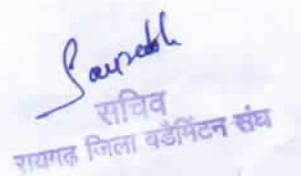 Saurabh
सचिव
रायगढ़ जिला बडैमिंटन संघ